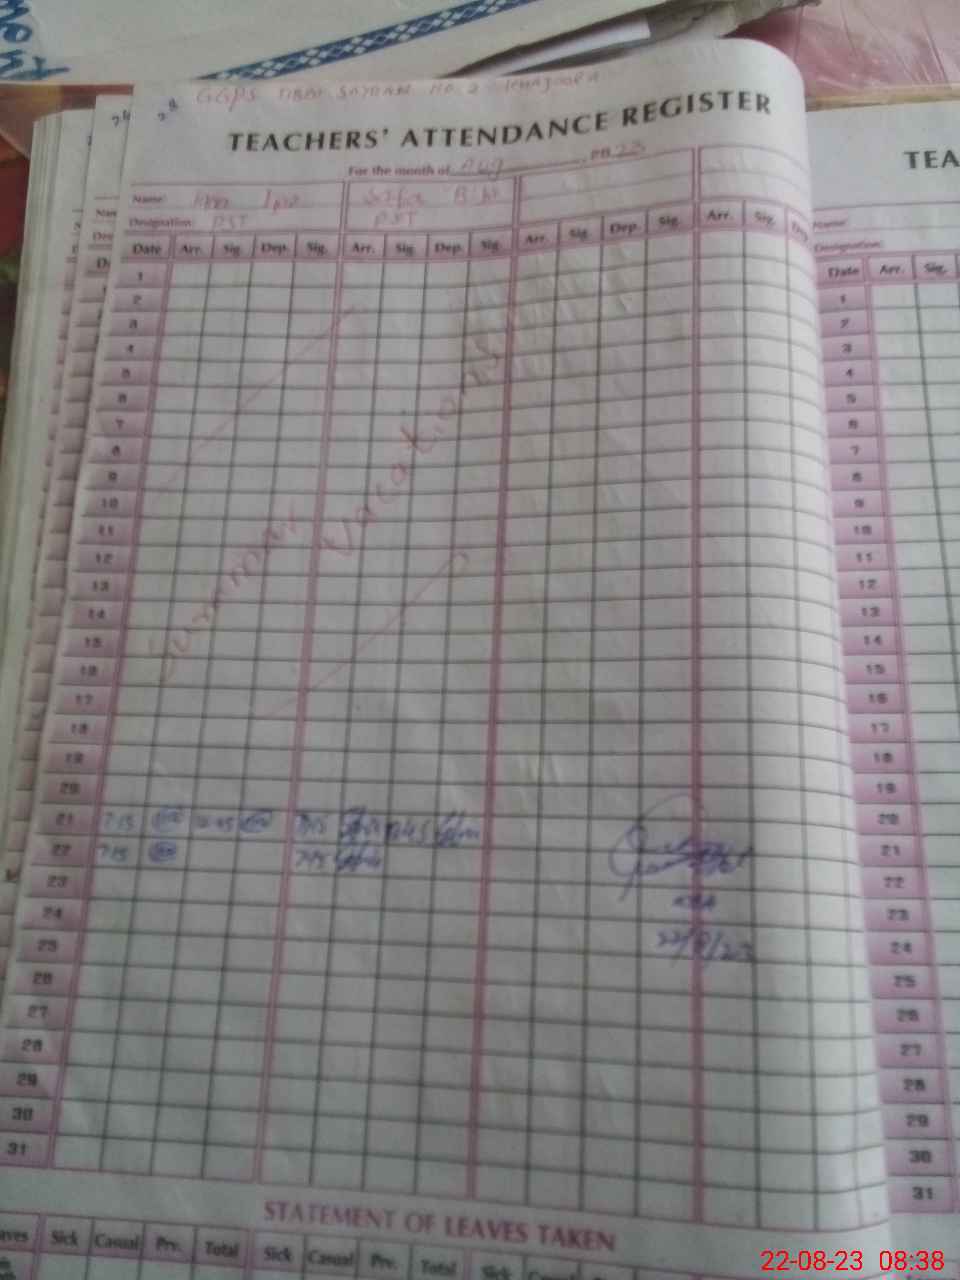 GGPS TIBBI SAYDAN NO. 2
TEACHERS' ATTENDANCE REGISTER
For the month of Aug 2023
Name:
Designation: PST PST
Date Arr. Sig. Dep. Sig. Arr. Sig. Dep. Sig. Arr. Sig. Dep. Sig. Arr. Sig. Dep.
1
2
3
4
5
6
7
8
9
10
11
12
13
14
15
16
17
18
19
20
21 7:15 12:45 7:15 12:45
22 7:15 7:15
23
24
25
26
27
28
29
30
31
Summar Vacations
22/8/23
STATEMENT OF LEAVES TAKEN
aves Sick Casual Prv. Total Sick Casual Prv. Total Sick Casual Prv.
TEA
Name:
Designation:
Date Arr. Sig.
1
2
3
4
5
6
7
8
9
10
11
12
13
14
15
16
17
18
19
20
21
22
23
24
25
26
27
28
29
30
31
22-08-23 08:38